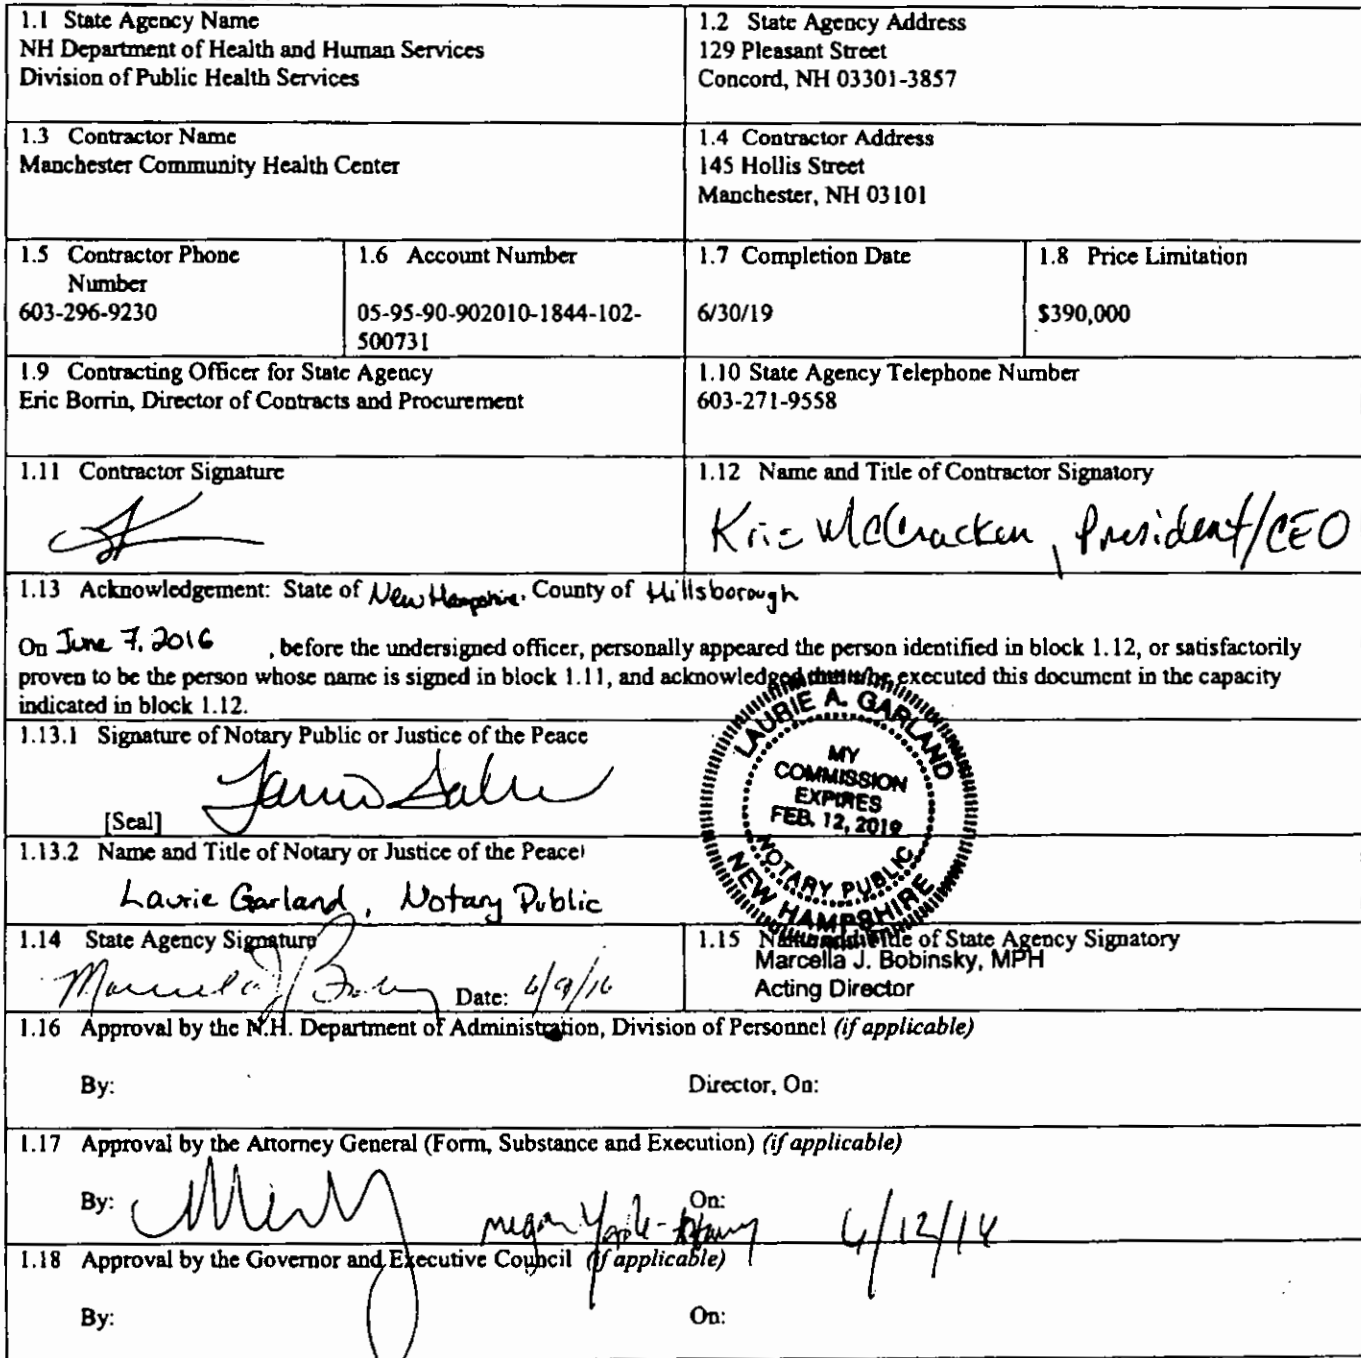 1.1 State Agency Name
NH Department of Health and Human Services
Division of Public Health Services
1.2 State Agency Address
129 Pleasant Street
Concord, NH 03301-3857
1.3 Contractor Name
Manchester Community Health Center
1.4 Contractor Address
145 Hollis Street
Manchester, NH 03101
1.5 Contractor Phone
Number
603-296-9230
1.6 Account Number
05-95-90-902010-1844-102-
500731
1.7 Completion Date
6/30/19
1.8 Price Limitation
$390,000
1.9 Contracting Officer for State Agency
Eric Borrin, Director of Contracts and Procurement
1.10 State Agency Telephone Number
603-271-9558
1.11 Contractor Signature
1.12 Name and Title of Contractor Signatory
Kris McCracken, President/CEO
1.13 Acknowledgement: State of New Hampshire, County of Hillsborough
On June 7, 2016 , before the undersigned officer, personally appeared the person identified in block 1.12, or satisfactorily
proven to be the person whose name is signed in block 1.11, and acknowledged executed this document in the capacity
indicated in block 1.12.
1.13.1 Signature of Notary Public or Justice of the Peace
[Seal]
LAURIE A. GARLAND
MY
COMMISSION
EXPIRES
FEB. 12, 2019
NOTARY PUBLIC
NEW HAMPSHIRE
1.13.2 Name and Title of Notary or Justice of the Peace
Laurie Garland, Notary Public
1.14 State Agency Signature
Date: 6/9/16
1.15 Name and Title of State Agency Signatory
Marcella J. Bobinsky, MPH
Acting Director
1.16 Approval by the N.H. Department of Administration, Division of Personnel (if applicable)
By: Director, On:
1.17 Approval by the Attorney General (Form, Substance and Execution) (if applicable)
By: On:
Megan 6/12/16
1.18 Approval by the Governor and Executive Council (if applicable)
By: On: